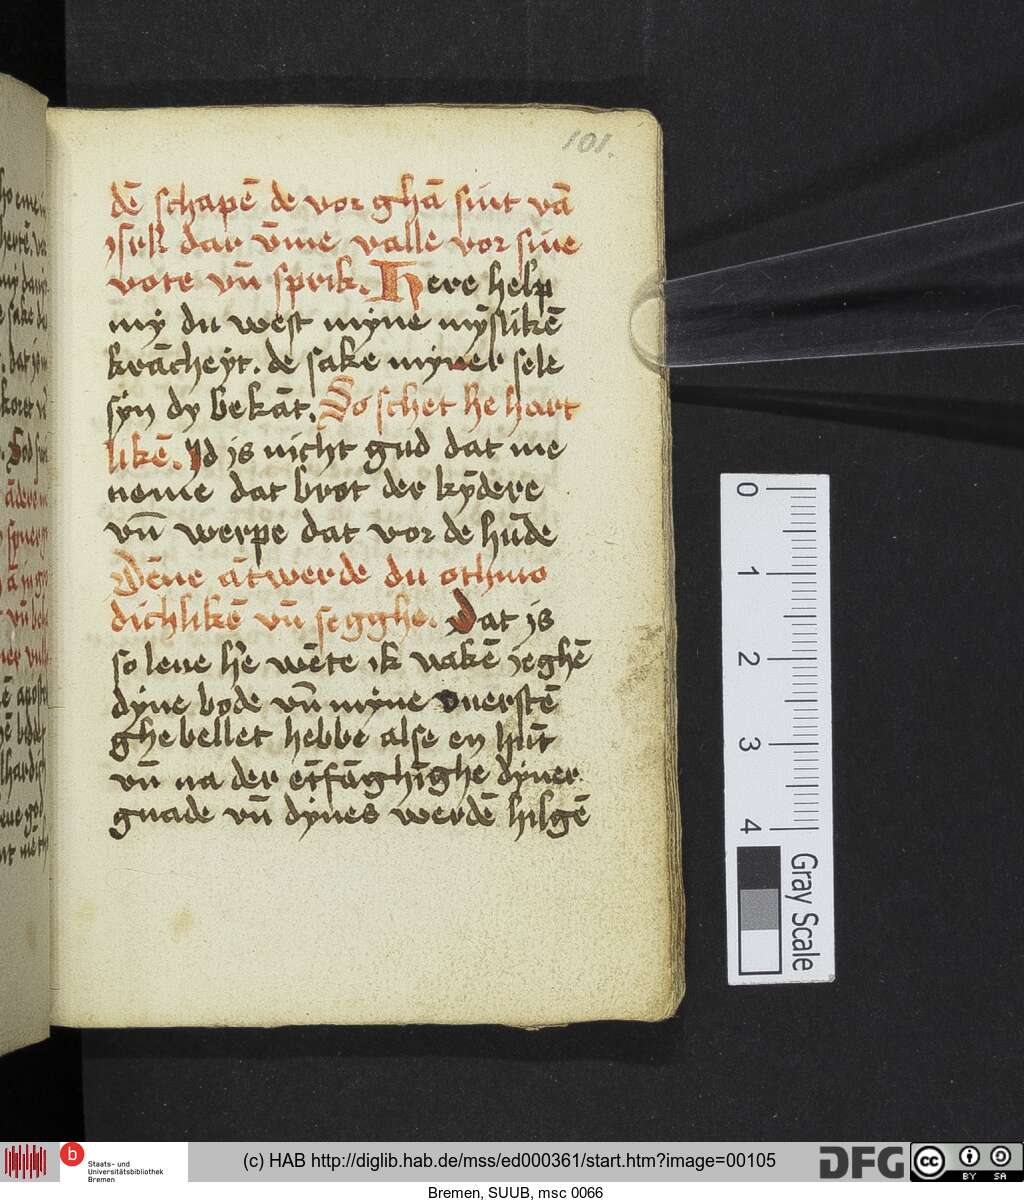 101.
dē schapē de vor ghā sint vā
ysrł dar v̄me valle vor sine
vote vn̄ sprik. Here help
mÿ du west myne mȳslikē
krācheÿt. de sake myner sele
sÿn dy bekāt. So schet he hart
likē. Id is nicht gud dat me
neme dat brot der kȳdere
vn̄ werpe dat vor de hūde
Dēne ātwerde du othmo
dichlikē vn̄ segghe. Dat is
so leue h'e wēte ik vakē jeghē
dyne bode vn̄ myne ouerstē
ghebellet hebbe alse en hūt
vn̄ na der ētfāghīghe dyner
gnade vn̄ dynes werdē hilgē
0
1
2
3
4
Gray Scale
b
Staats- und
Universitätsbibliothek
Bremen
(c) HAB http://diglib.hab.de/mss/ed000361/start.htm?image=00105
DFG
cc
BY SA
Bremen, SUUB, msc 0066